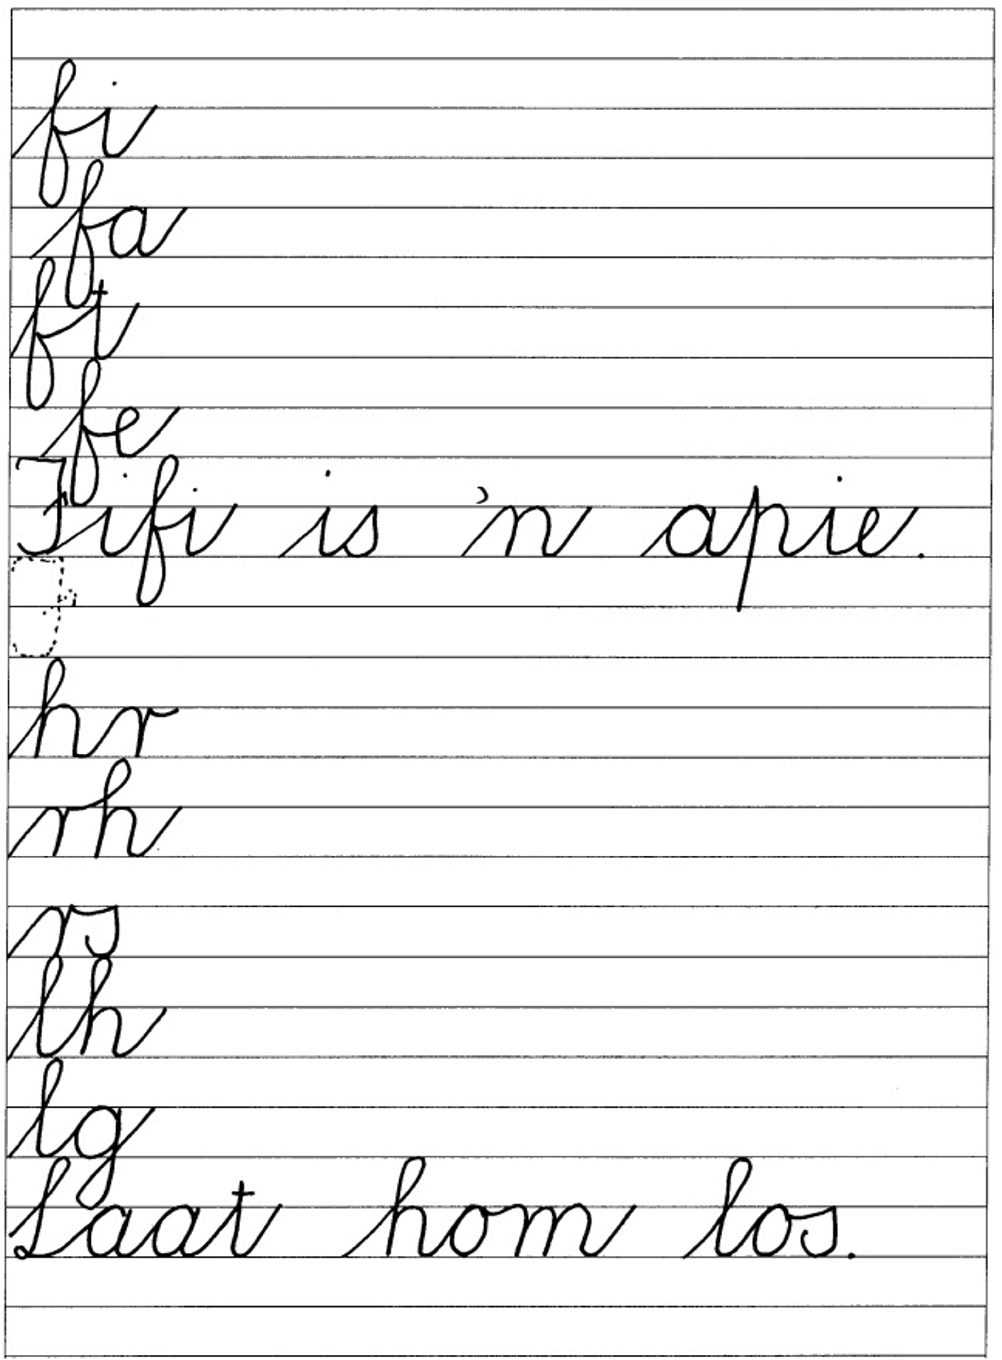 fi
fa
ft
fe
Fifi is 'n apie.
F
hr
rh
rs
lh
lg
Laat hom los.